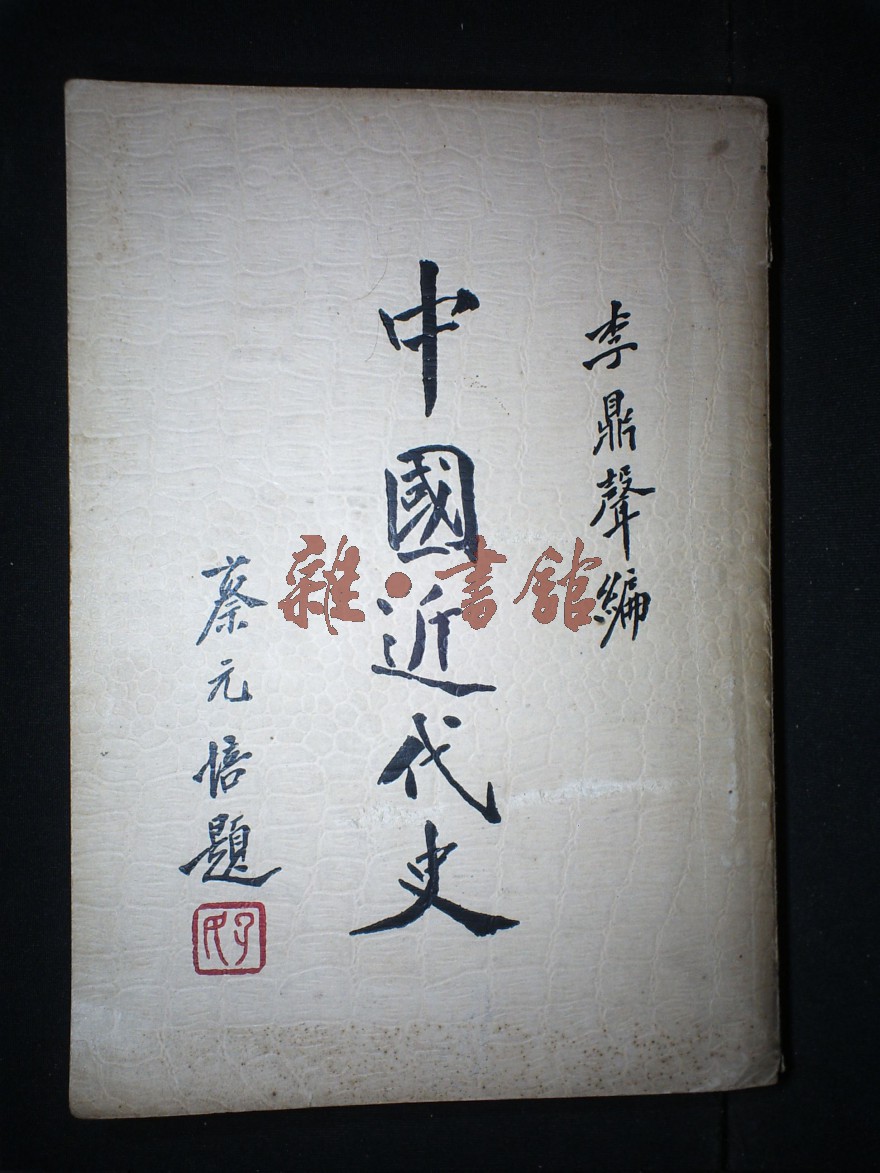 李鼎聲編
中國近代史
蔡元培題
孑民
雜·書館